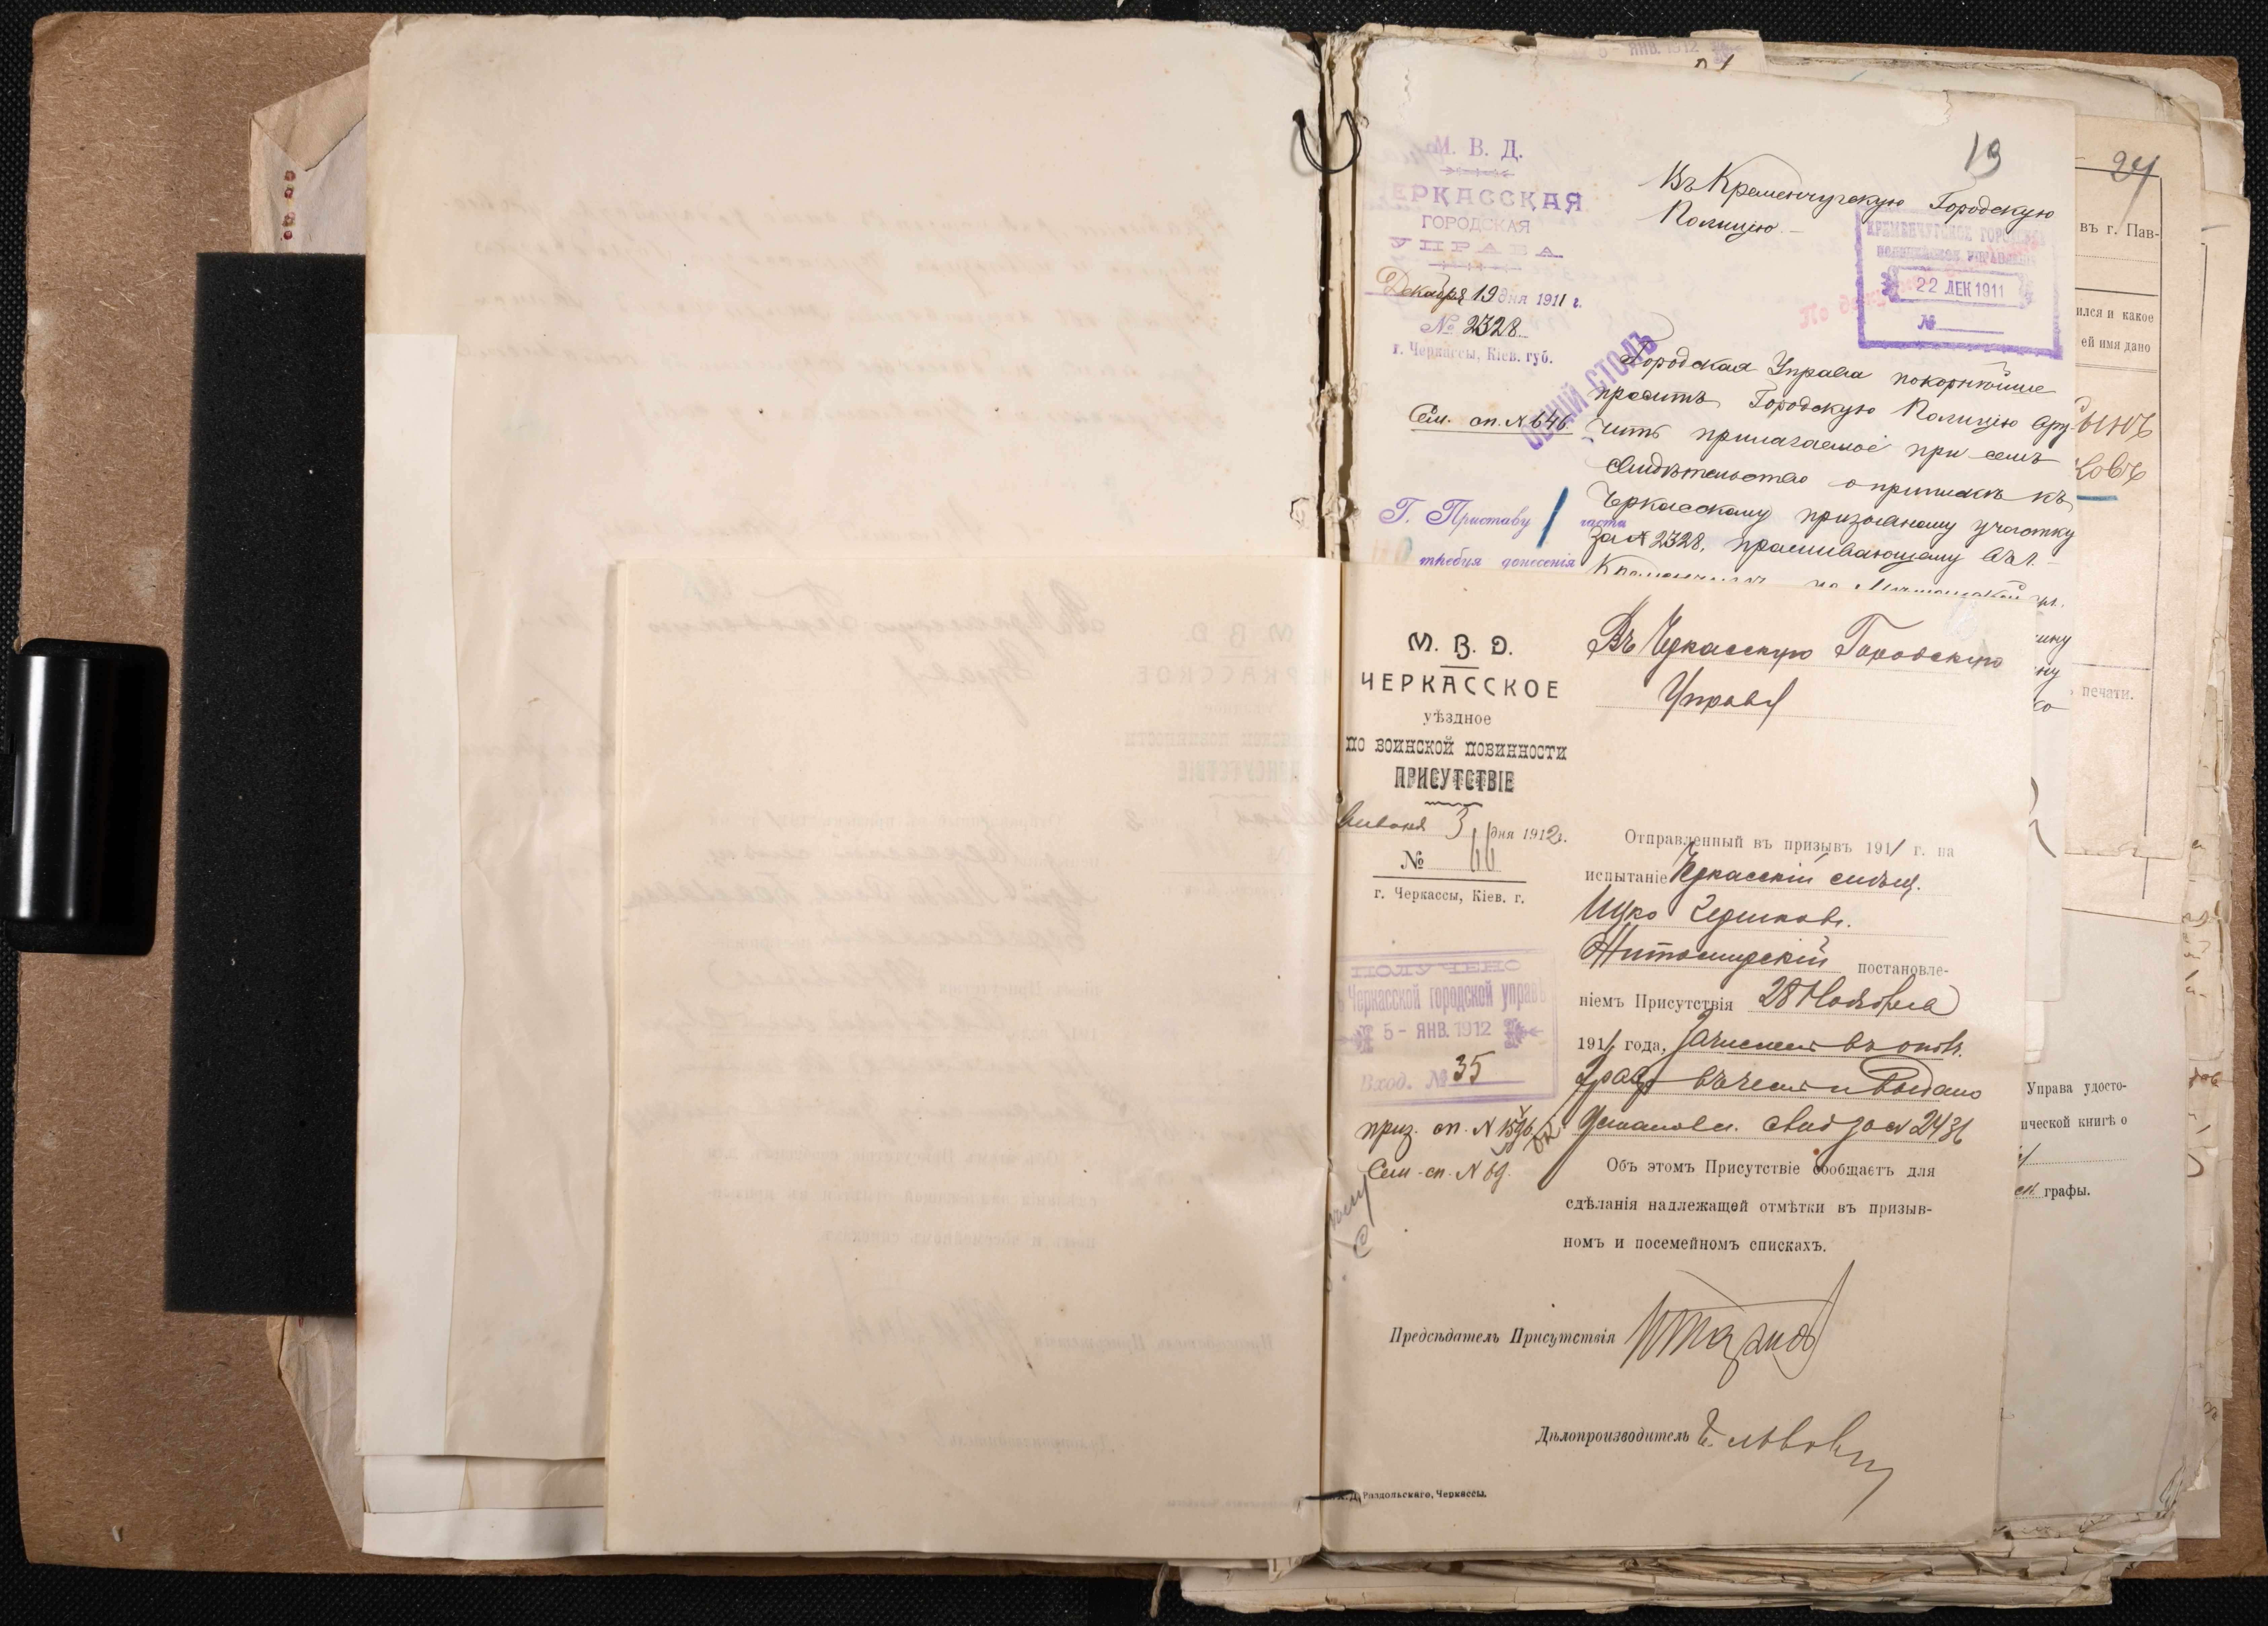 5 - ЯНВ. 1912
19
М. В. Д.
ЧЕРКАССКАЯ
ГОРОДСКАЯ
УПРАВА
Декабря 19 дня 1911 г.
№ 2328
г. Черкассы, Кіев. губ.
Въ Кременчугскую Городскую
Полицію.
КРЕМЕНЧУГСКОЕ ГОРОДСКОЕ
ПОЛИЦЕЙСКОЕ УПРАВЛЕНІЕ
22 ДЕК 1911
№
Сем. сп. № 646
ОБЩІЙ СТОЛЪ
Городская Управа покорнѣйше
проситъ Городскую Полицію вру-
чить прилагаемое при семъ
свидѣтельство о припискѣ къ
Черкасскому призывному участку
за № 2328, проживающему въ г.
Г. Приставу 1 части
требуя донесенія
24
въ г. Пав-
ился и какое
ей имя дано
печати.
М. В. Д.
ЧЕРКАССКОЕ
уѣздное
ПО ВОИНСКОЙ ПОВИННОСТИ
ПРИСУТСТВІЕ
Января 3 дня 1912 г.
№ 66
г. Черкассы, Кіев. г.
Въ Черкасскую Городскую
Управу
Отправленный въ призывъ 1911 г. на
испытаніе Черкасскій
Ицко
Житомирскій постановле-
ніемъ Присутствія 28 Ноября
1911 года, зачисленъ въ опол.
и выдано
Установл. свид за № 2436
Объ этомъ Присутствіе сообщаетъ для
сдѣланія надлежащей отмѣтки въ призыв-
номъ и посемейномъ спискахъ.
ПОЛУЧЕНО
Черкасской городской управѣ
5 - ЯНВ. 1912
Вход. № 35
приз. сп. №
Сем. сп. № 69.
Предсѣдатель Присутствія
Дѣлопроизводитель
Раздольскаго, Черкассы.
Управа удосто-
ической книгѣ о
графы.